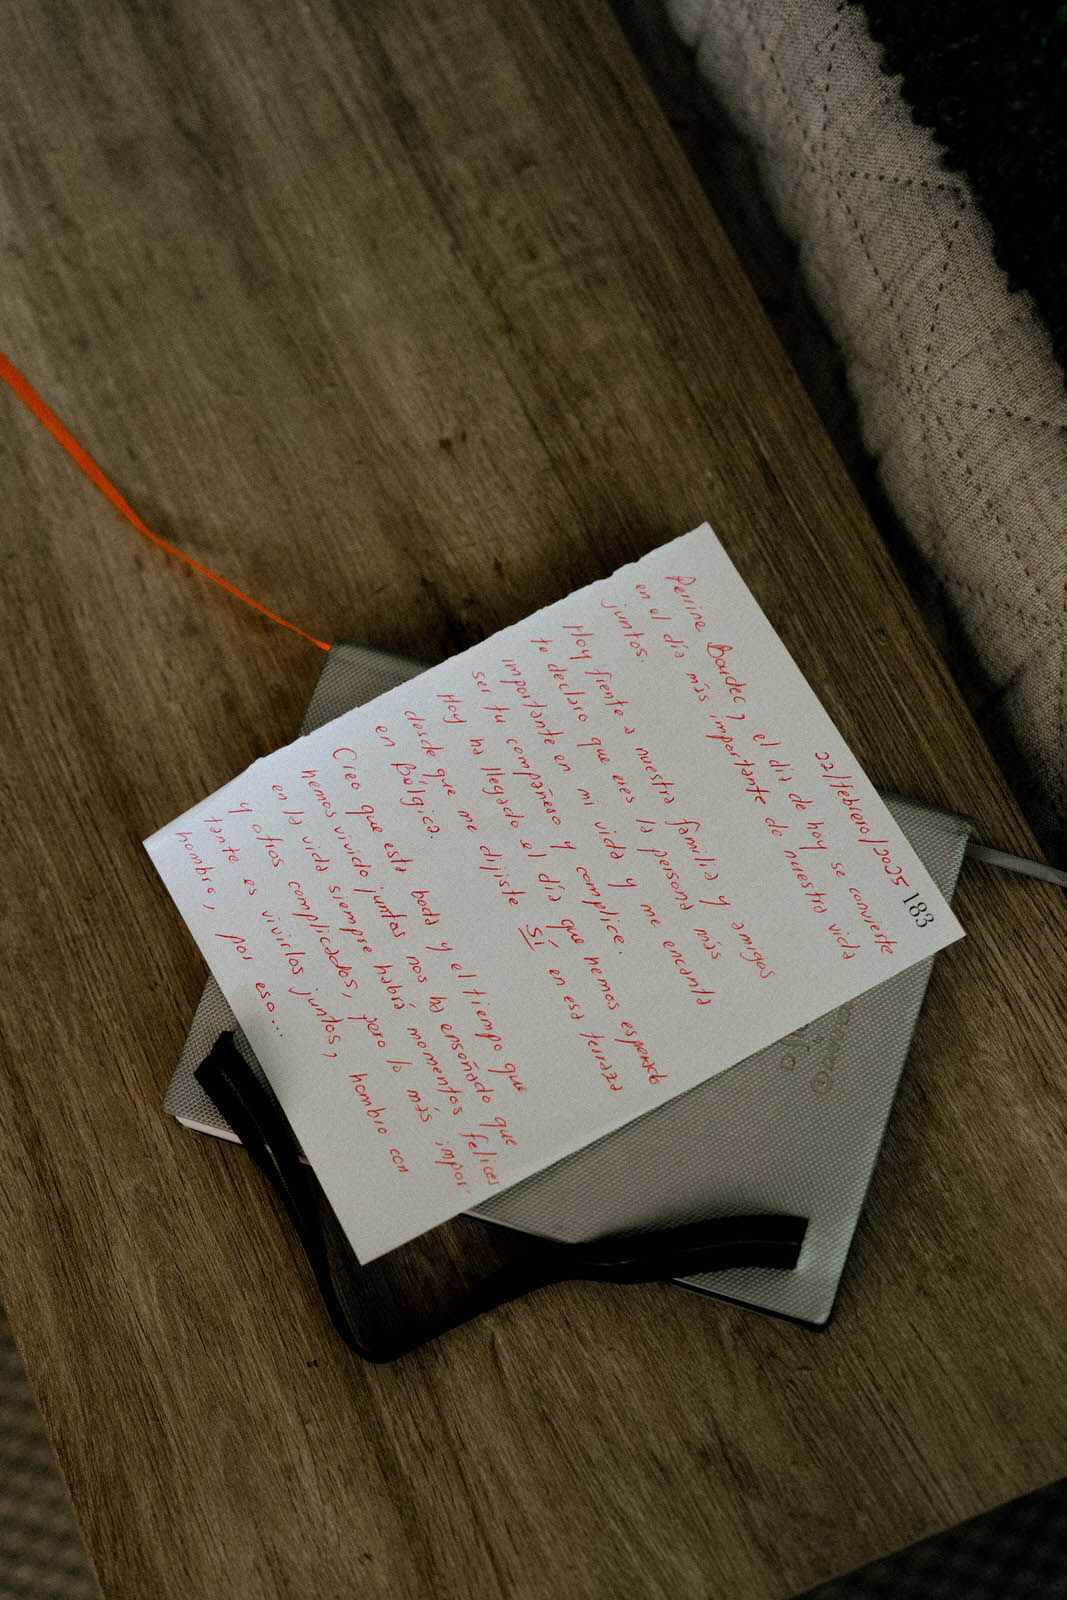 183
22/febrero/2025
Perrine Bardec, el día de hoy se convierte
en el día más importante de nuestra vida
juntos.
Hoy frente a nuestra familia y amigos
te declaro que eres la persona más
importante en mi vida y me encanta
ser tu compañero y cómplice.
Hoy ha llegado el día que hemos esperado
desde que me dijiste Sí en esa terraza
en Bélgica.
Creo que esta boda y el tiempo que
hemos vivido juntos nos ha enseñado que
en la vida siempre habrá momentos felices
y otros complicados, pero lo más impor-
tante es vivirlos juntos, hombro con
hombro, por eso...